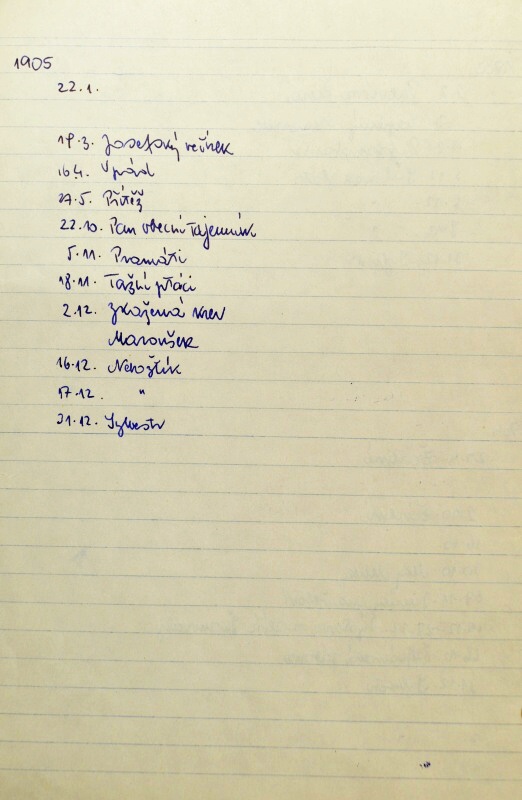 1905
22.1.
19.3. Josefský věneček
16.4. Úpád
27.5. Přítěž
22.10. Pan obecní tajemník
5.11. Pramáti
18.11. Tažní ptáci
2.12. Zkažená krev
Maroušek
16.12.
17.12. "
31.12. Sylvestr